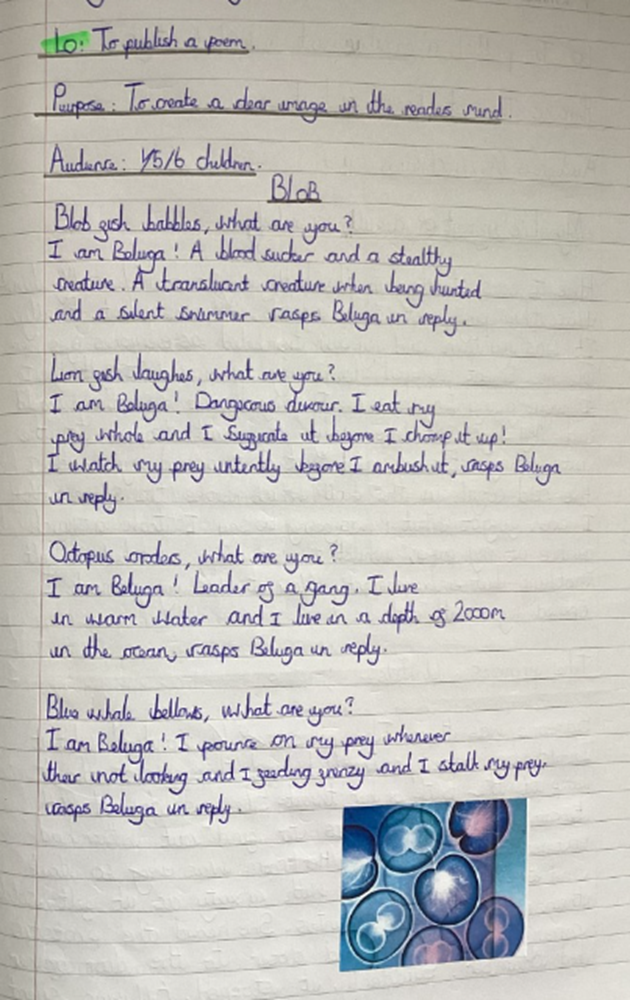 Lo: To publish a poem.
Purpose: To create a clear image in the readers mind.
Audience: Y5/6 children.
Blob
Blob fish babbles, what are you?
I am Beluga! A blood sucker and a stealthy
creature. A translucent creature when being hunted
and a silent swimmer rasps Beluga in reply.
Lion fish laughes, what are you?
I am Beluga! Dangerous devour. I eat my
prey whole and I sufficate it before I chomp it up!
I watch my prey intently before I ambush it, rasps Beluga
in reply.
Octopus orders, what are you?
I am Beluga! Leader of a gang. I live
in warm water and I live in a depth of 2000m
in the ocean, rasps Beluga in reply.
Blue whale bellows, what are you?
I am Beluga! I pounce on my prey whenever
their not looking and I feeding frenzy and I stalk my prey.
rasps Beluga in reply.